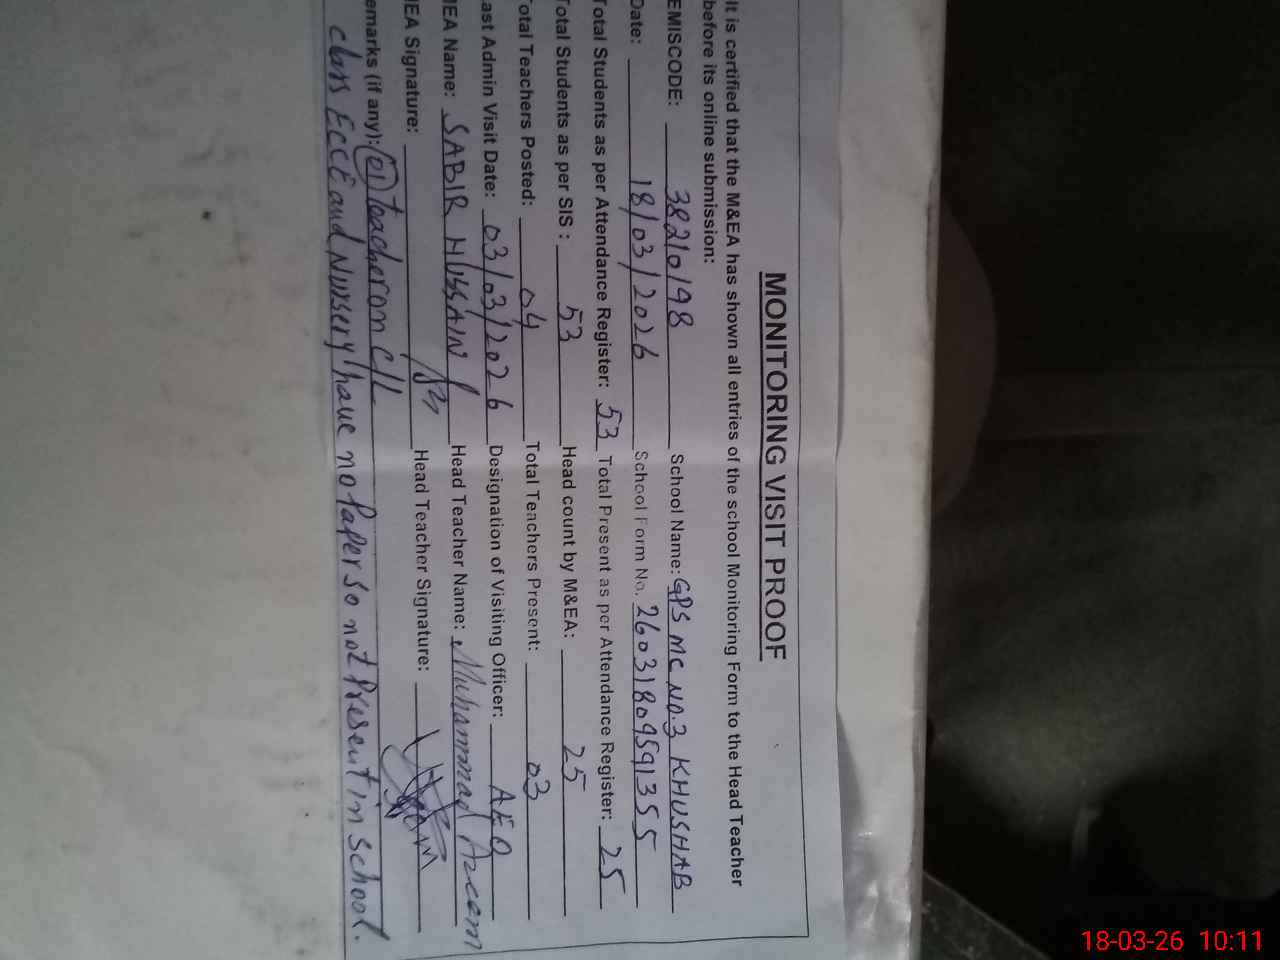 MONITORING VISIT PROOF
It is certified that the M&EA has shown all entries of the school Monitoring Form to the Head Teacher
before its online submission:
EMISCODE: 38210198 School Name: GPS MC NO.3 KHUSHAB
Date: 18/03/2026 School Form No. 26031809591355
Total Students as per Attendance Register: 53 Total Present as per Attendance Register: 25
Total Students as per SIS : 53 Head count by M&EA: 25
Total Teachers Posted: 04 Total Teachers Present: 03
ast Admin Visit Date: 03/03/2026 Designation of Visiting Officer: AEO
IEA Name: SABIR HUSSAIN Head Teacher Name: Muhammad Azeem
IEA Signature: Head Teacher Signature:
emarks (if any): (01) teacher on C/L
class ECCE and Nursery have no Paper so not Present in school.
18-03-26 10:11